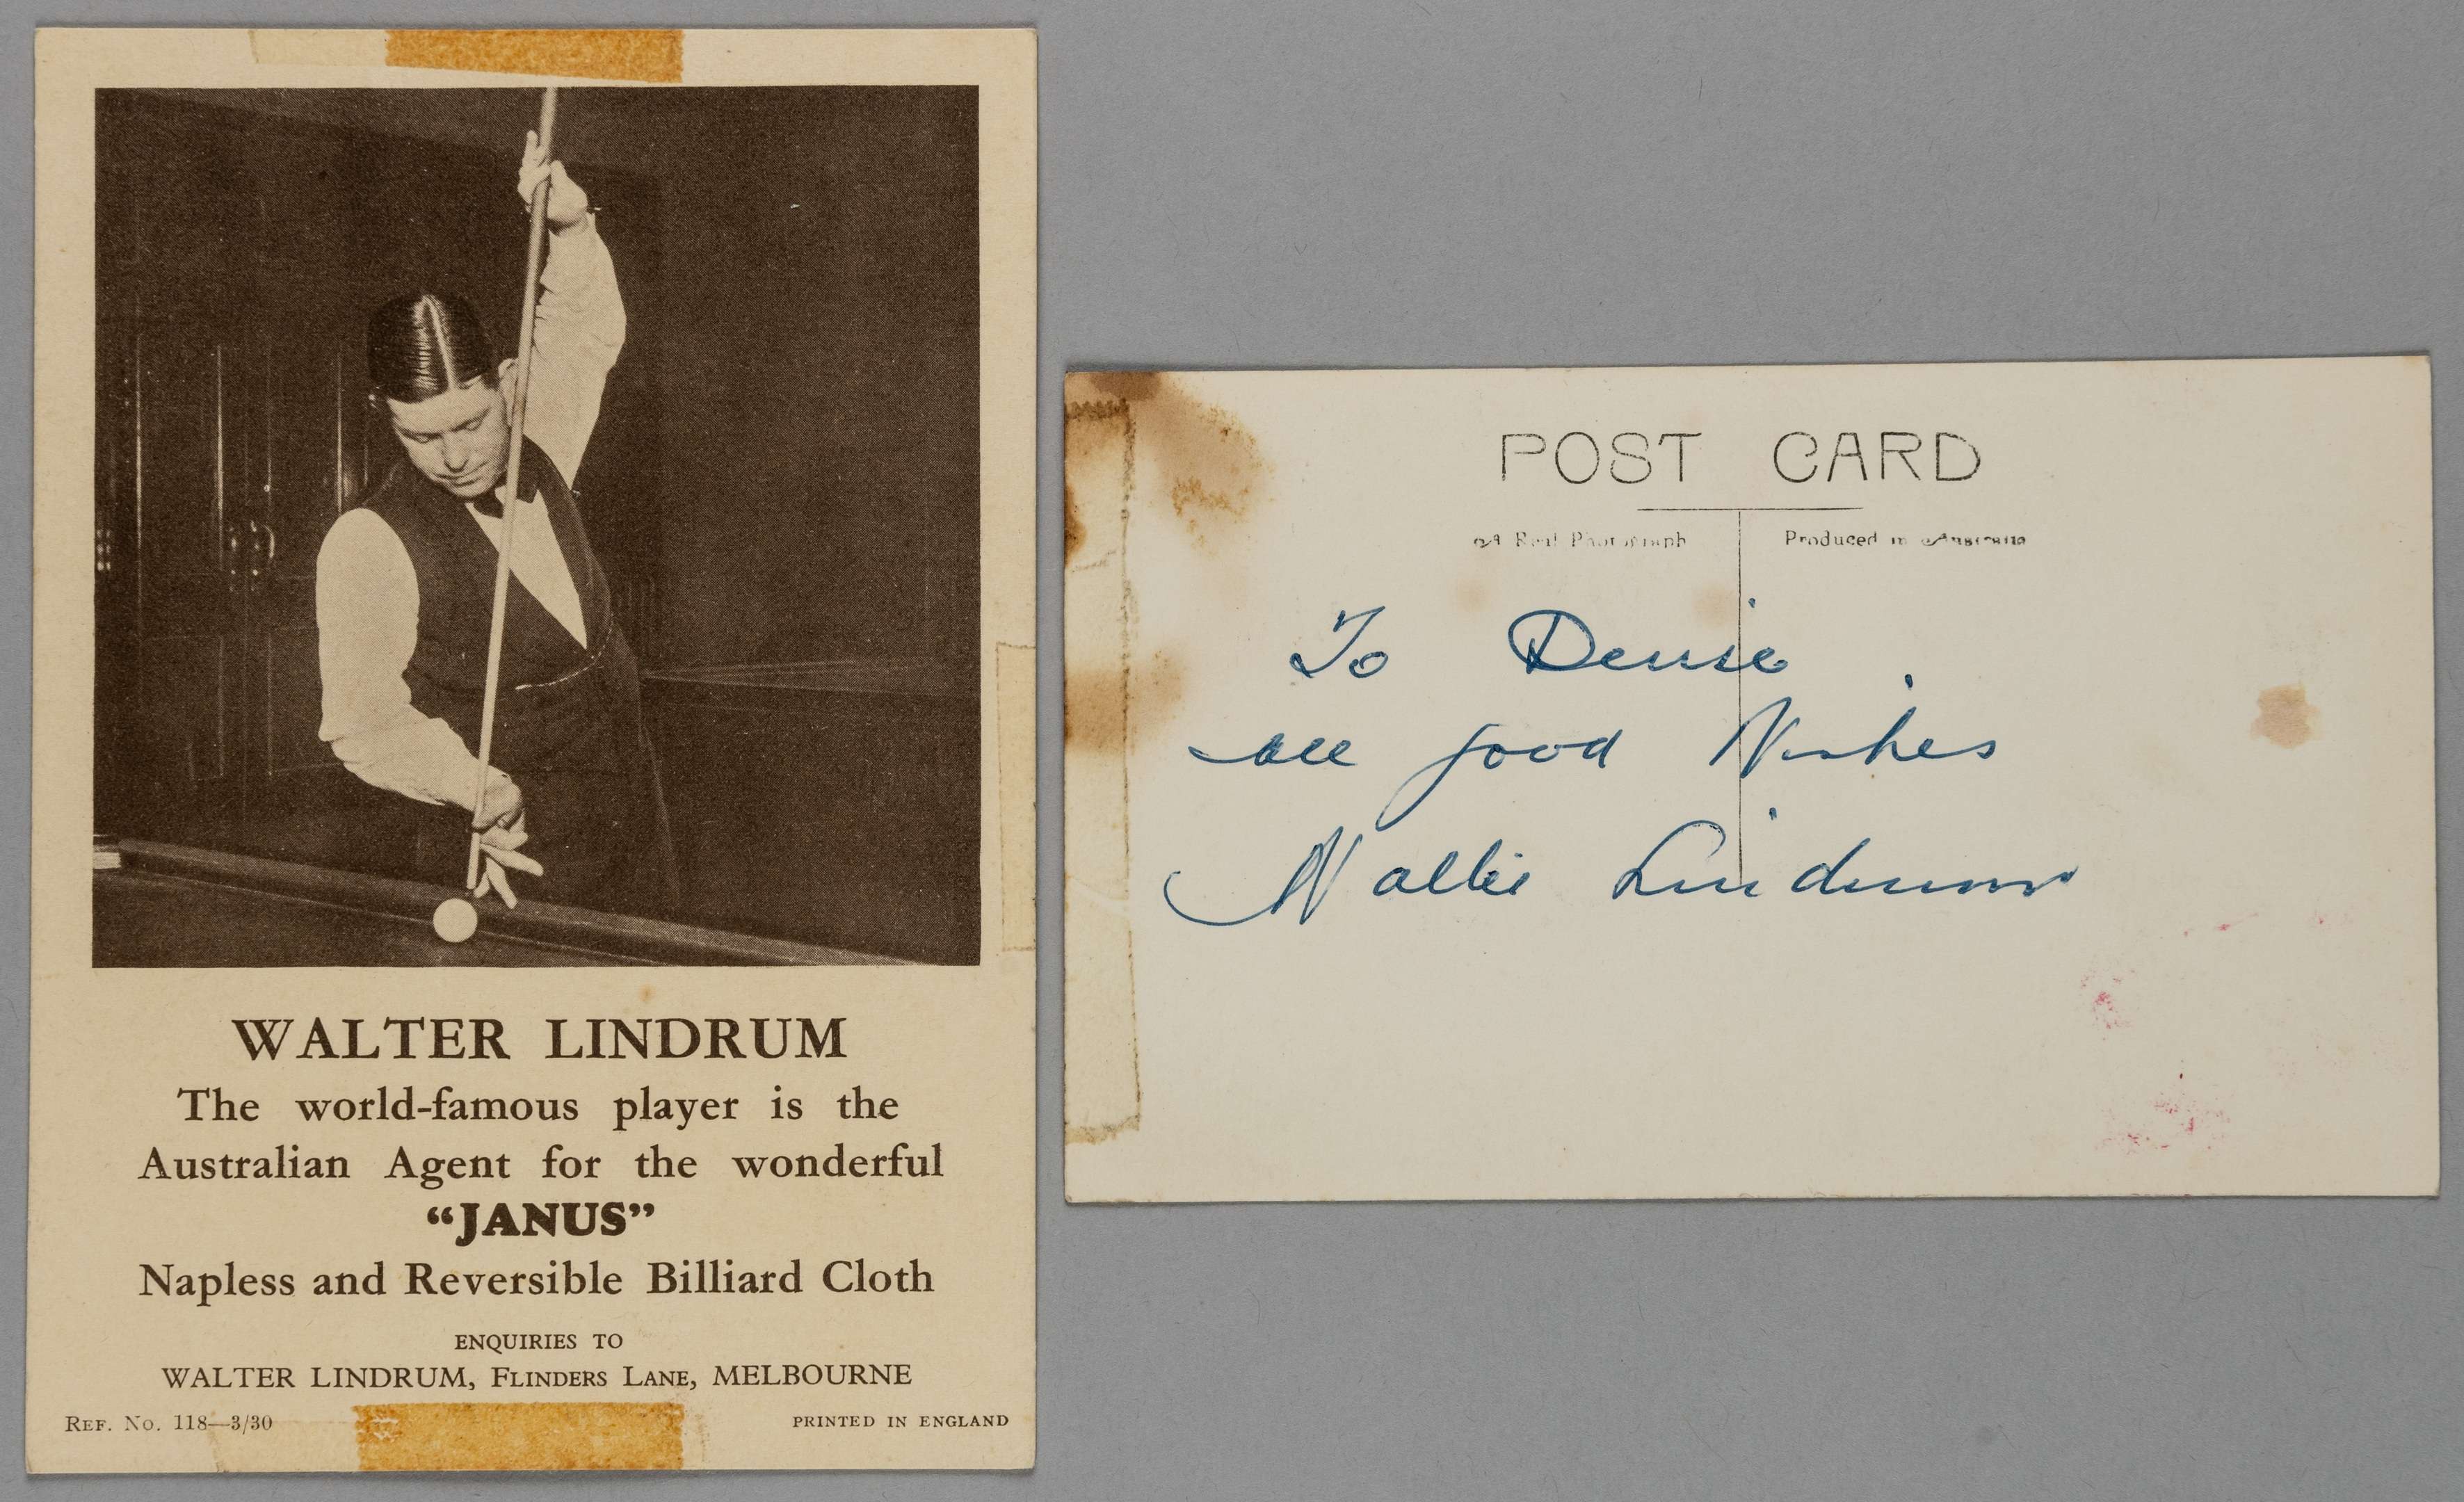 WALTER LINDRUM
The world-famous player is the
Australian Agent for the wonderful
“JANUS”
Napless and Reversible Billiard Cloth
ENQUIRIES TO
WALTER LINDRUM, FLINDERS LANE, MELBOURNE
REF. No. 118—3/30
PRINTED IN ENGLAND
POST CARD
A Real Photograph
Produced in Australia
To Denise
all good Wishes
Wallie Lindrum